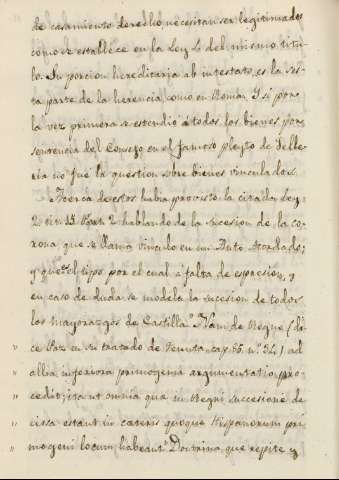 de casamiento derecho necesitan ser legitimados
como se establece en la Ley 2 del mismo titu-
lo. Su porcion hereditaria ab intestato es la ses-
ta parte de la herencia, como en Roma. Y si por
la vez primera se estendió á todos los bienes por
sentencia del Consejo en el famoso pleyto de
no fué la question sobre bienes vinculados.
Acerca de estos habia provisto la citada Ley
2 tit. 15 Part. 2 hablando de la sucesion de la co-
rona, que se llama vinculo en un Auto Acordado;
y que es el tipo por el cual á falta de espresion, y
en caso de duda se modela la sucesion de todos
los Mayorazgos de Castilla. "Nam de Regno (di-
ce Paz en su tratado de Tenuta, cap. nº ) ad
allia inferiora primogenia argumentatio pro-
cedit; itaut omnia quæ in Regni successione de-
cissa estant in cæteris quoque Hispanorum pri-
mogenii locum habeant." Doctrina que repite y